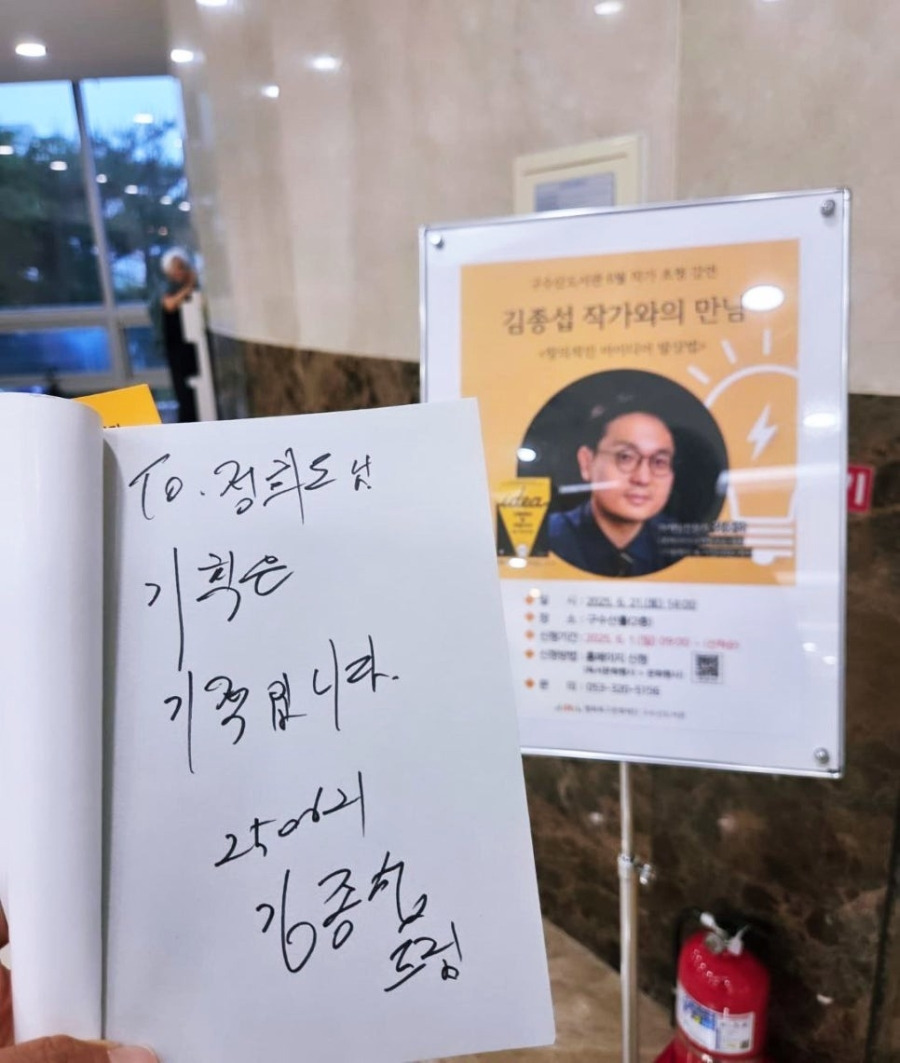 To. 정희도님
기획은
기적입니다.
250621
김종섭
드림
구수산도서관 6월 작가 초청 강연
김종섭 작가와의 만남
<창의적인 아이디어 발상법>
idea
일 시 : 2025. 6. 21.(토) 14:00
장 소 : 구수산홀(2층)
신청기간 : 2025. 6. 1.(일) 09:00 ~ (선착순)
신청방법 : 홈페이지 신청
문 의 : 053-320-5156
구수산도서관